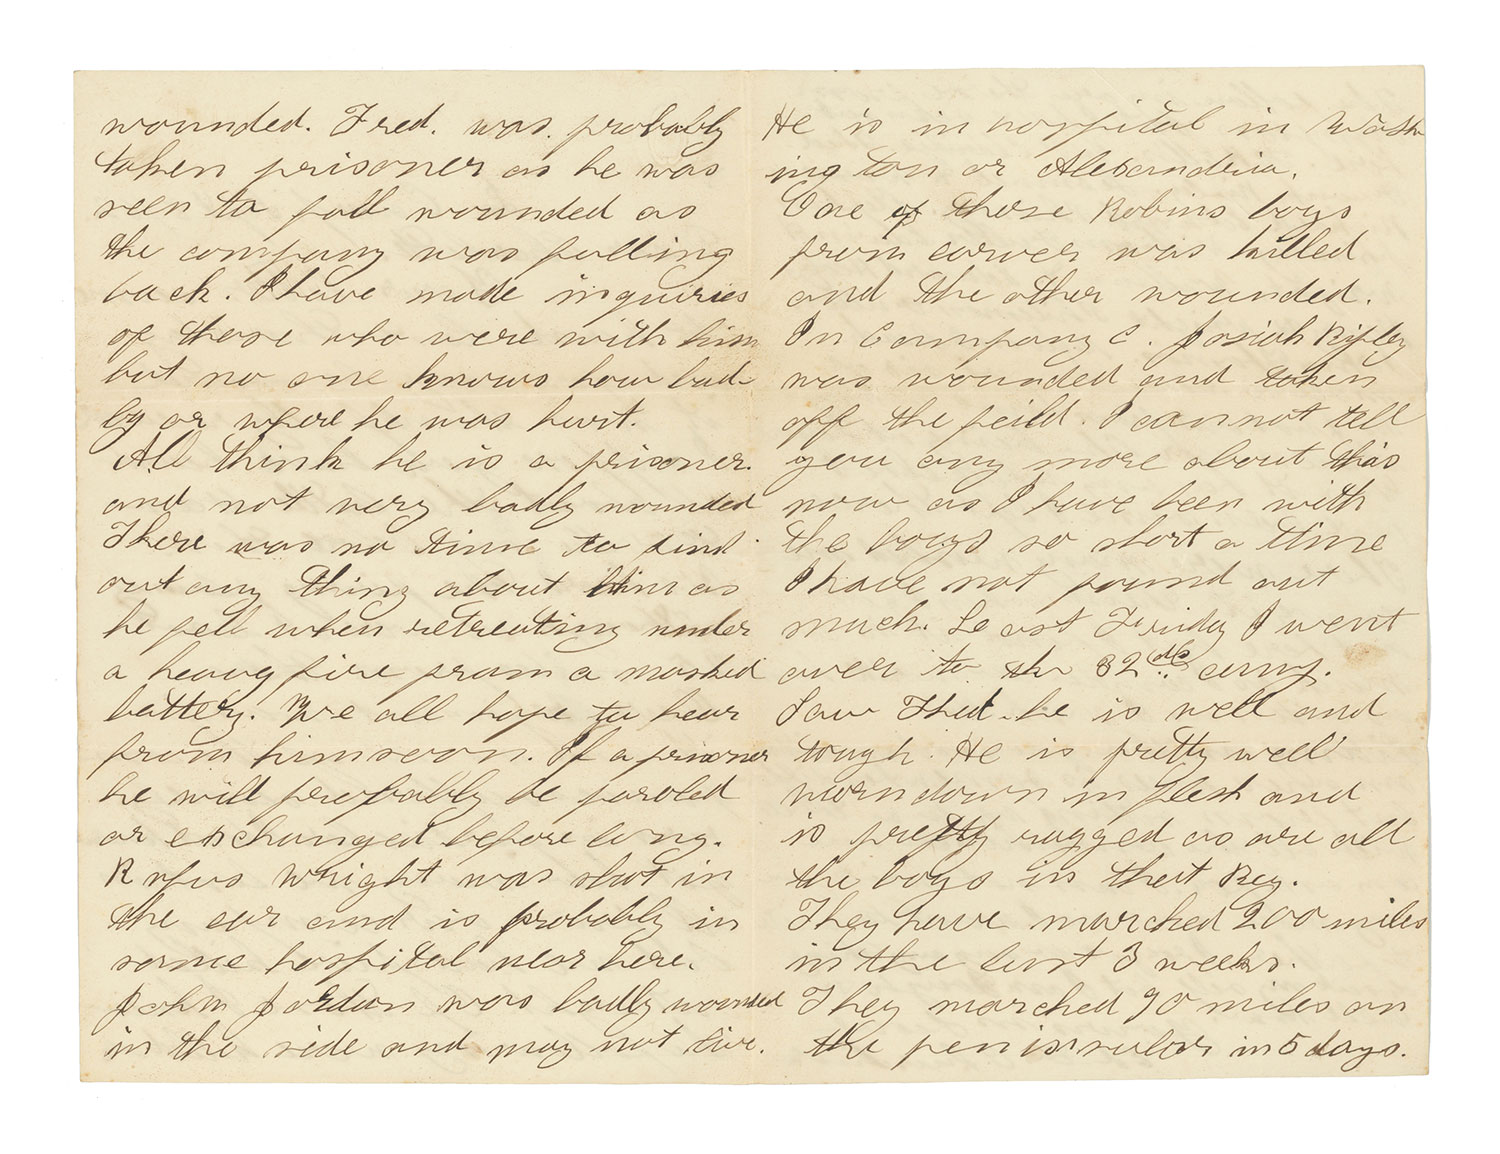 wounded. Fred. was probably
taken prisoner as he was
seen to fall wounded as
the company was falling
back. I have made inquiries
of those who were with him
but no one knows how bad-
ly or where he was hurt.
All think he is a prisoner.
and not very badly wounded
There was no time to find
out any thing about him as
he fell when retreating under
a heavy fire from a masked
battery. We all hope to hear
from him soon. If a prisoner
he will probably be paroled
or exchanged before long.
Rufus Wright was shot in
the ear and is probably in
some hospital near here.
John Jordan was badly wounded
in the side and may not live.
He is in hospital in Wash
ington or Alexandria.
One of those Robins boys
from carver was killed
and the other wounded.
In Company C. Josiah Ripley
was wounded and taken
off the feild. I cannot tell
you any more about this
now as I have been with
the boys so short a time
I have not found out
much. Last Friday I went
over to the 32nd camp.
Saw Thed. he is well and
tough. He is pretty well
worn down in flesh and
is pretty ragged as are all
the boys in that Reg.
They have marched 200 miles
in the last 3 weeks.
They marched 90 miles on
the peninsular in 5 days.